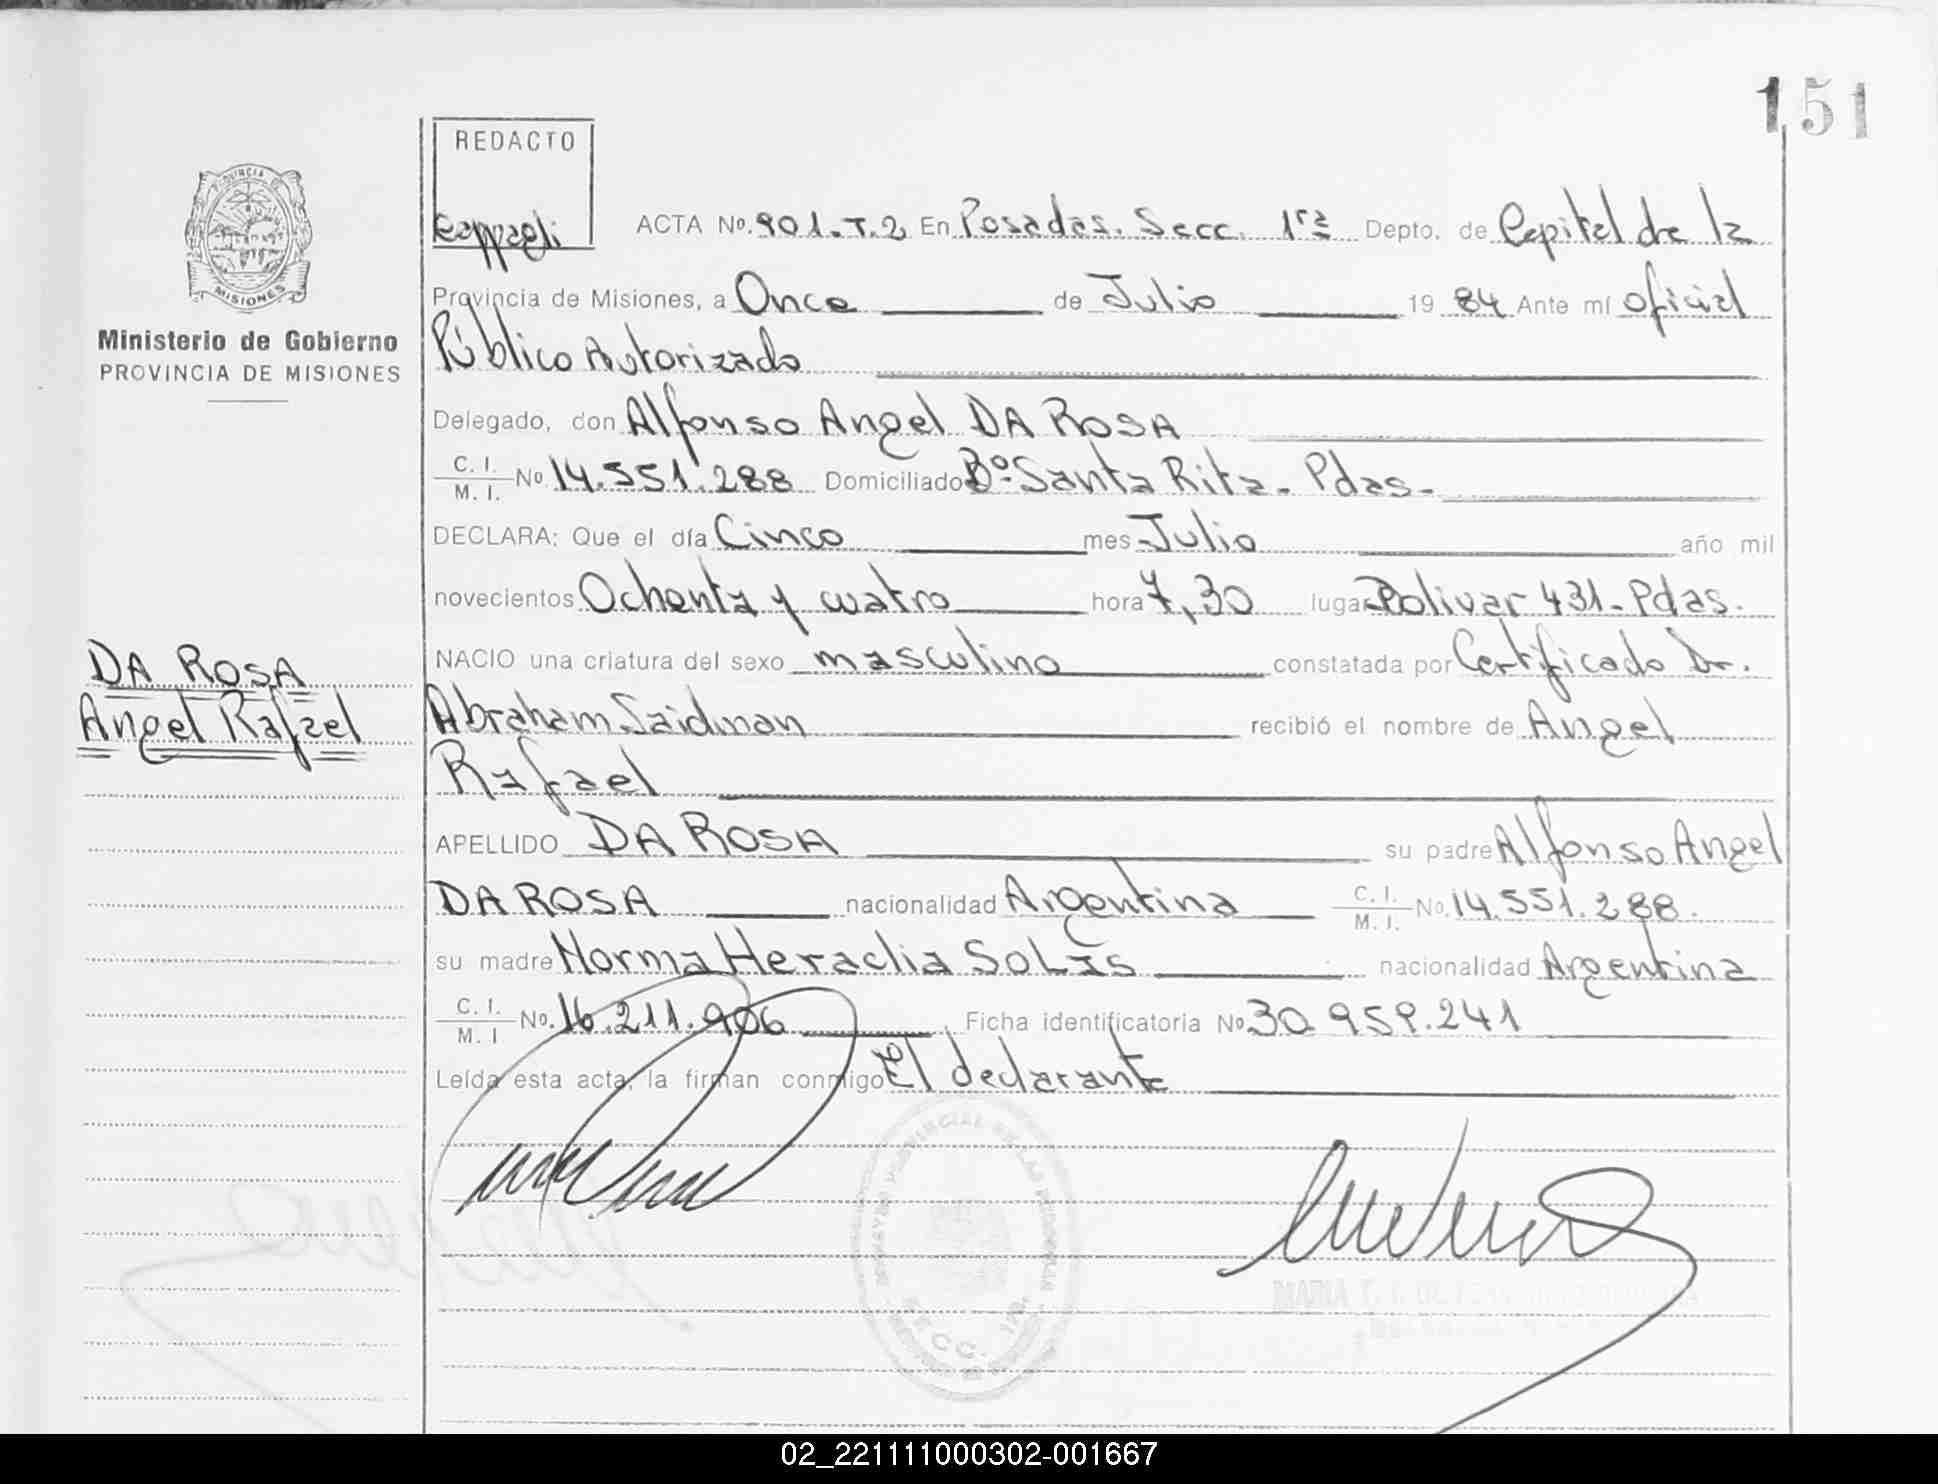 151
REDACTO
PROVINCIA DE
MISIONES
Ministerio de Gobierno
PROVINCIA DE MISIONES
ACTA No. 901.T.2 En Posadas. Secc. 1ra Depto. de Capital de la
Provincia de Misiones, a Once de Julio 19 84 Ante mí oficial
Público Autorizado
Delegado, don Alfonso Angel DA ROSA
C. I.
M. I. No. 14.551.288 Domiciliado Bº Santa Rita - Pdas-
DECLARA: Que el día Cinco mes Julio año mil
novecientos Ochenta y cuatro hora 7,30 lugar Bolivar 431- Pdas.
NACIO una criatura del sexo masculino constatada por Certificado Dr.
DA ROSA
Angel Rafael
Abraham Saidman recibió el nombre de Angel
Rafael
APELLIDO DA ROSA su padre Alfonso Angel
DA ROSA nacionalidad Argentina C. I.
M. I. No. 14.551.288.
su madre Norma Heraclia SOLIS nacionalidad Argentina
C. I.
M. I No. 16.211.906 Ficha identificatoria No 30.959.241
Leída esta acta, la firman conmigo El declarante
SECC. 1ra.
02_221111000302-001667